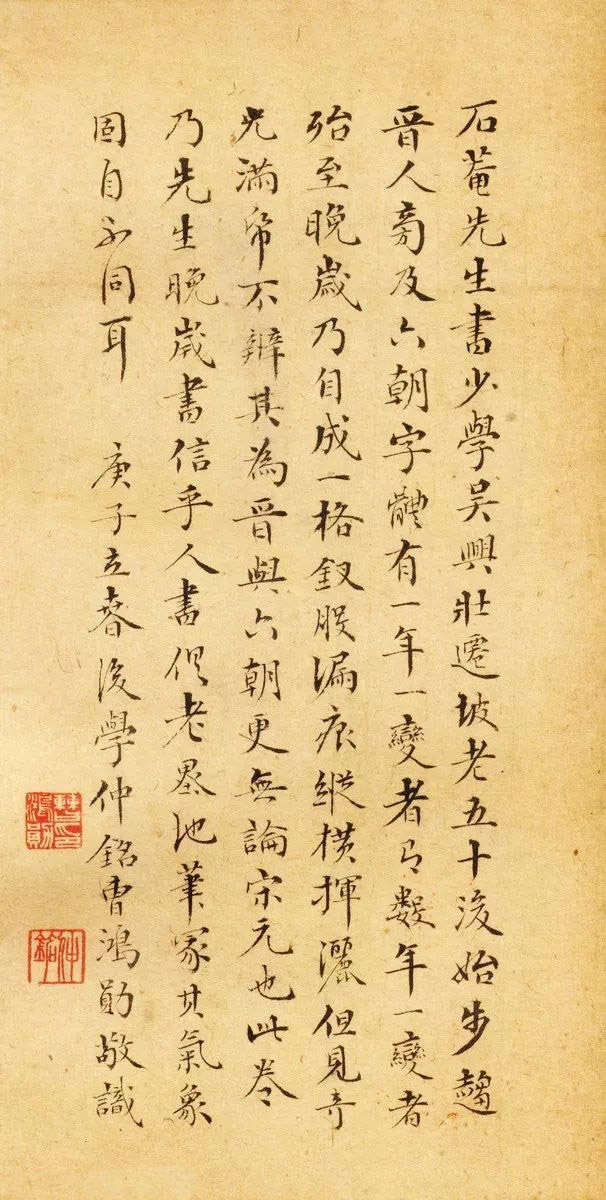 石菴先生書少學吳興壯遷坡老五十後始步趨
晉人旁及六朝字體有一年一變者有數年一變者
殆至晚歲乃自成一格釵股漏痕縱横揮灑但見奇
光滿帋不辨其為晉與六朝更無論宋元也此卷
乃先生晚歲書信乎人書俱老墨池筆冢其氣象
固自不同耳　庚子立春後學仲銘曹鴻勛敬識
曹印鴻勛
仲銘